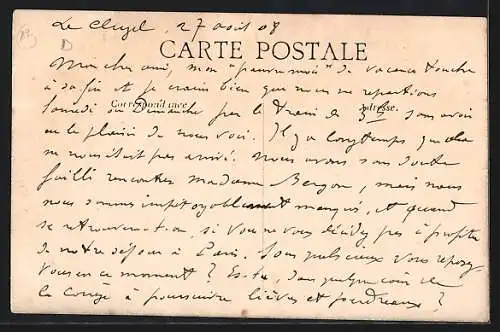 Le Cluzel, 27 août 08
CARTE POSTALE
Mon cher ami, mon "pauvre mois" de vacances touche
à sa fin et je crains bien que nous ne repartions
Correspondance Adresse.
samedi ou Dimanche par le train de sans avoir
eu le plaisir de vous voir. Il y a longtemps que cela
ne nous était pas arrivé. Nous avons sans doute
failli rencontrer madame mais nous
nous sommes impitoyablement manqués, et quand
se retrouvera-t-on, si vous ne vous décidez pas à profiter
de notre séjour à Paris. Dans quels lieux vous reposez
vous en ce moment? Es-tu, dans quelque coin de
la Corrèze à poursuivre lièvres et perdreaux?